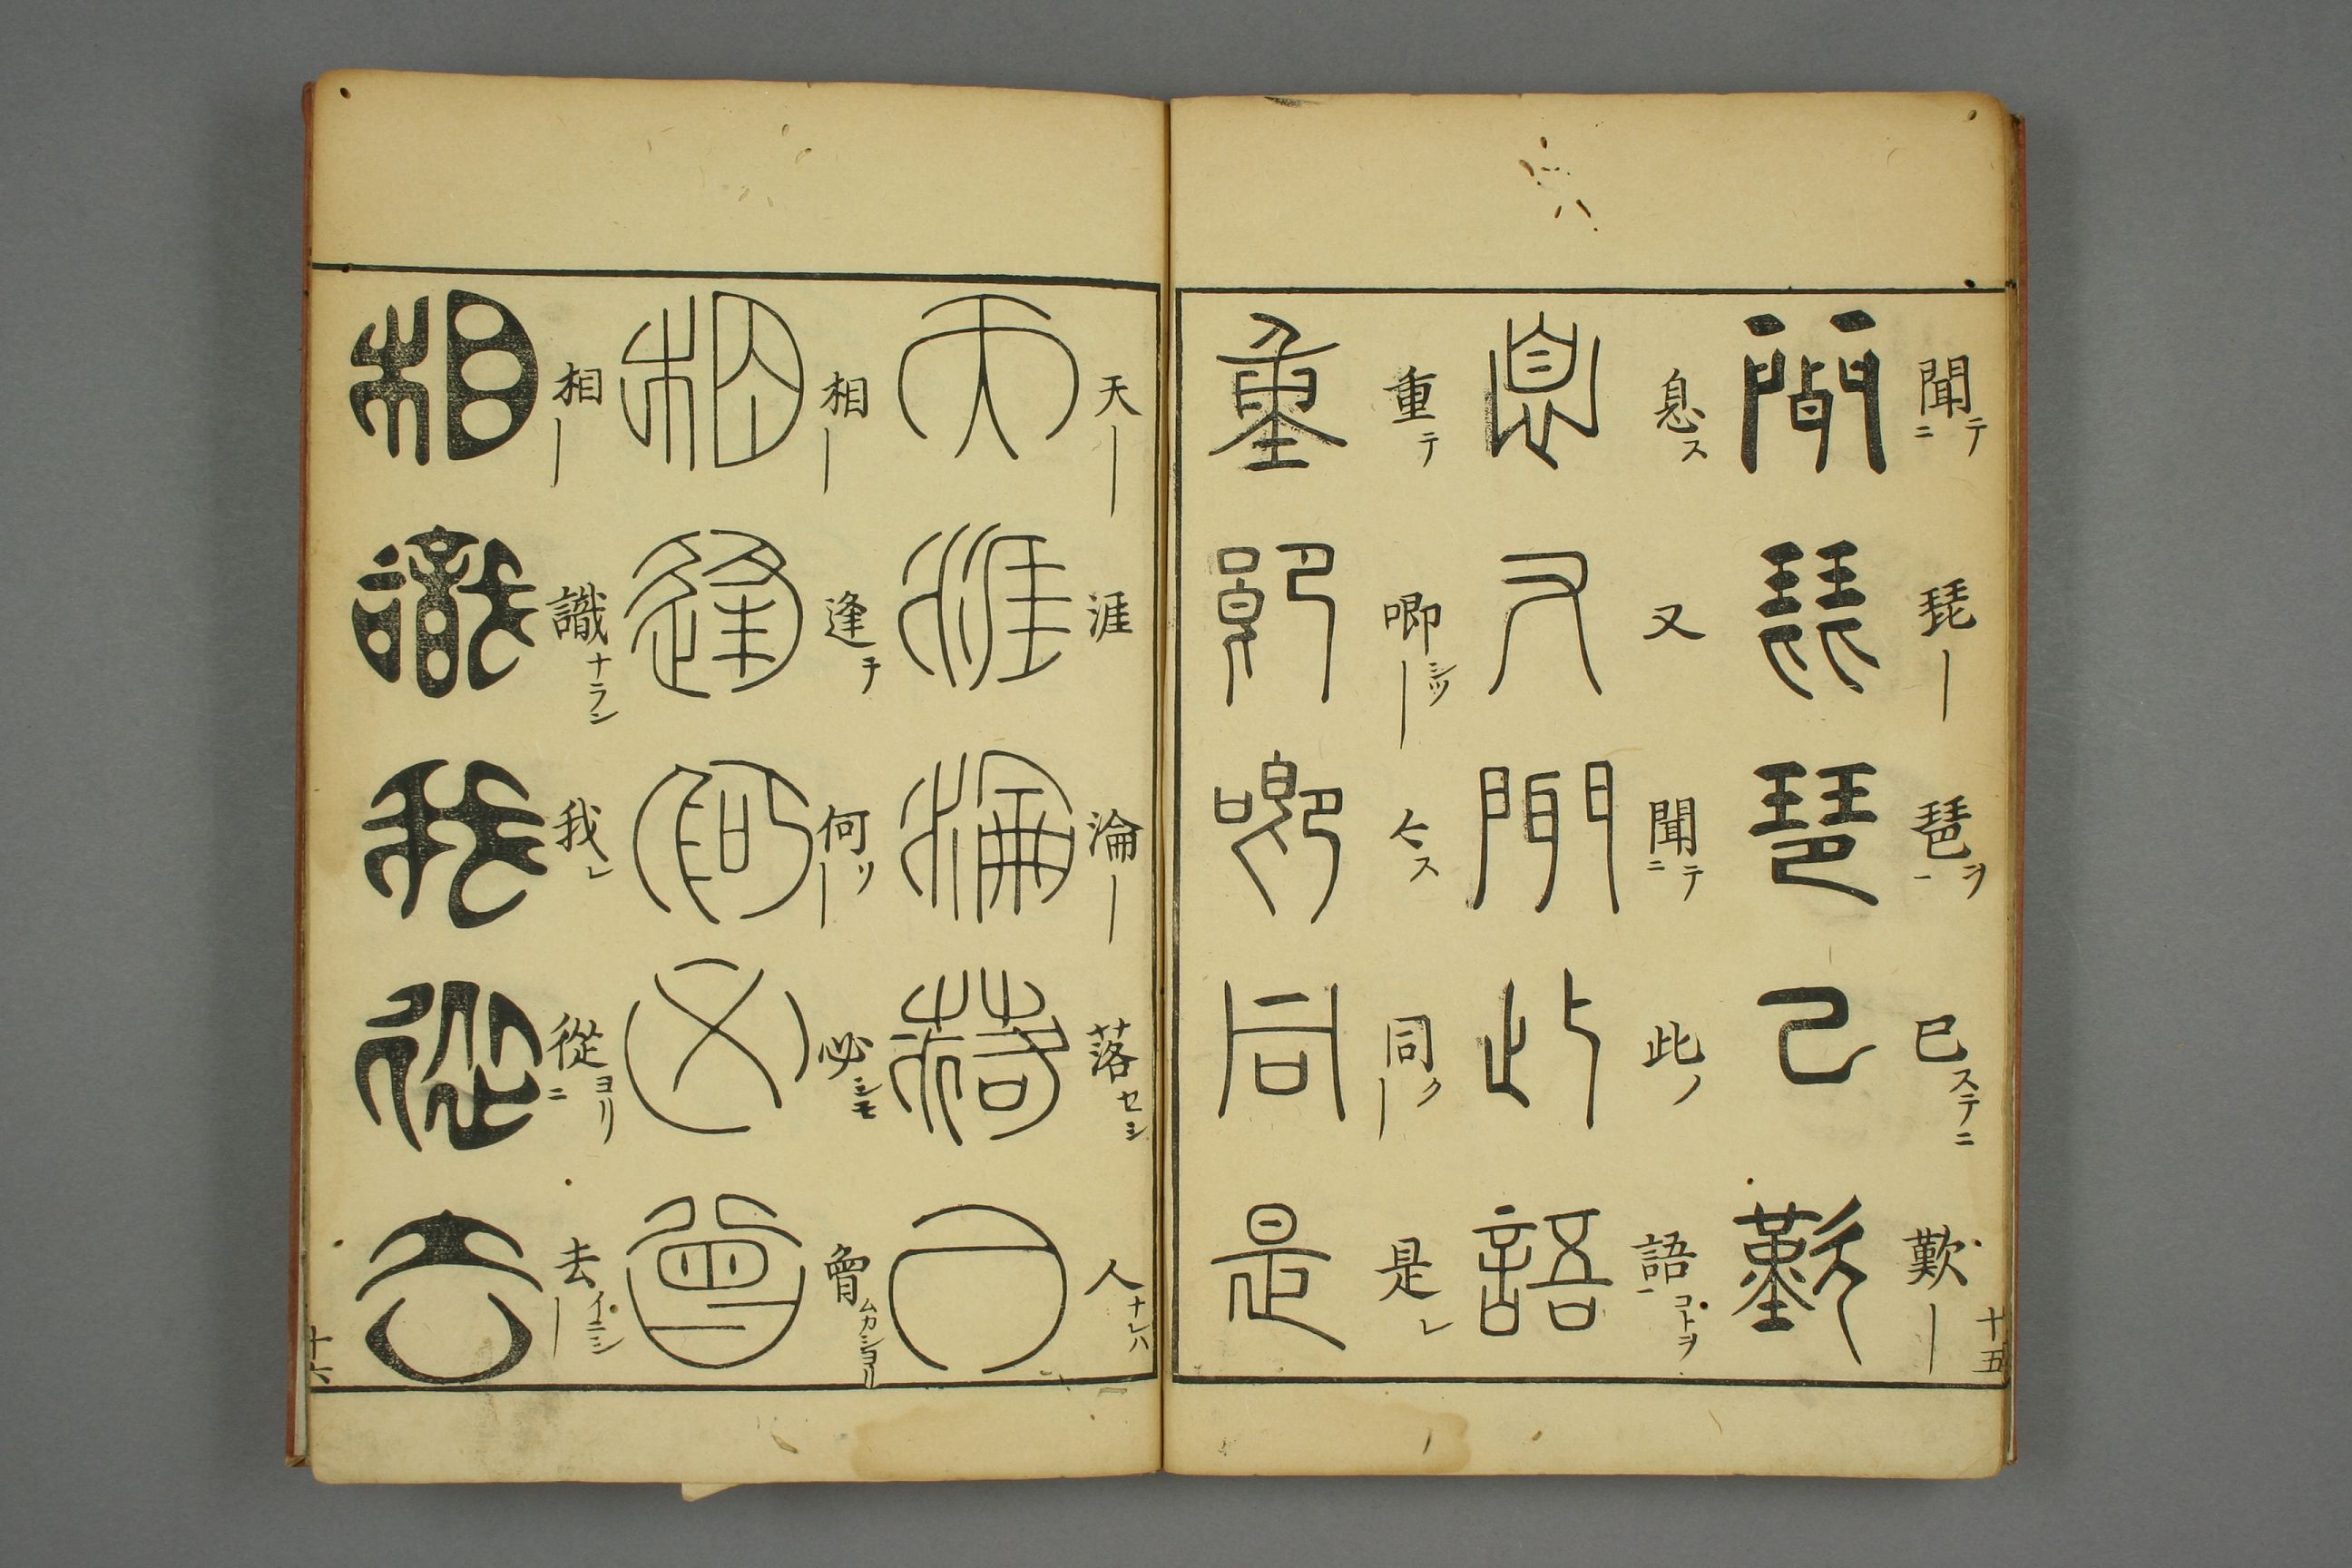 聞テニ 琵― 琶ヲ一 已ステニ 歎―
聞琵琶已歎
息ス 又 聞テニ 此ノ 語コトヲ一
息又聞此語
重テ 唧シツ― 〻ス 同ク― 是レ
重唧唧同是
十五
天― 涯 淪― 落セシ 人ナレハ
天涯淪落人
相― 逢テ 何ソ― 必シモ 曾ムカシヨリ
相逢何必曾
相― 識ナラン 我レ 從ヨリニ 去イニシ―
相識我從去
十六